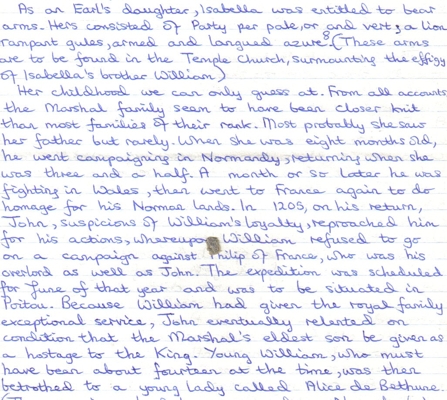 As an Earl's daughter, Isabella was entitled to bear
arms. Hers consisted of Party per pale, or and vert, a lion
rampant gules, armed and langued azure⁸. (These arms
are to be found in the Temple Church, surmounting the effigy
of Isabella's brother William)
Her childhood we can only guess at. From all accounts
the Marshal family seem to have been closer knit
than most families of their rank. Most probably she saw
her father but rarely. When she was eight months old,
he went campaigning in Normandy, returning when she
was three and a half. A month or so later he was
fighting in Wales, then went to France again to do
homage for his Norman lands. In 1205, on his return,
John, suspicious of William's loyalty, reproached him
for his actions, whereupon William refused to go
on a campaign against Philip of France, who was his
overlord as well as John. The expedition was scheduled
for June of that year and was to be situated in
Poitou. Because William had given the royal family
exceptional service, John eventually relented on
condition that the Marshal's eldest son be given as
a hostage to the King. Young William, who must
have been about fourteen at the time, was then
betrothed to a young lady called Alice de Bethune.